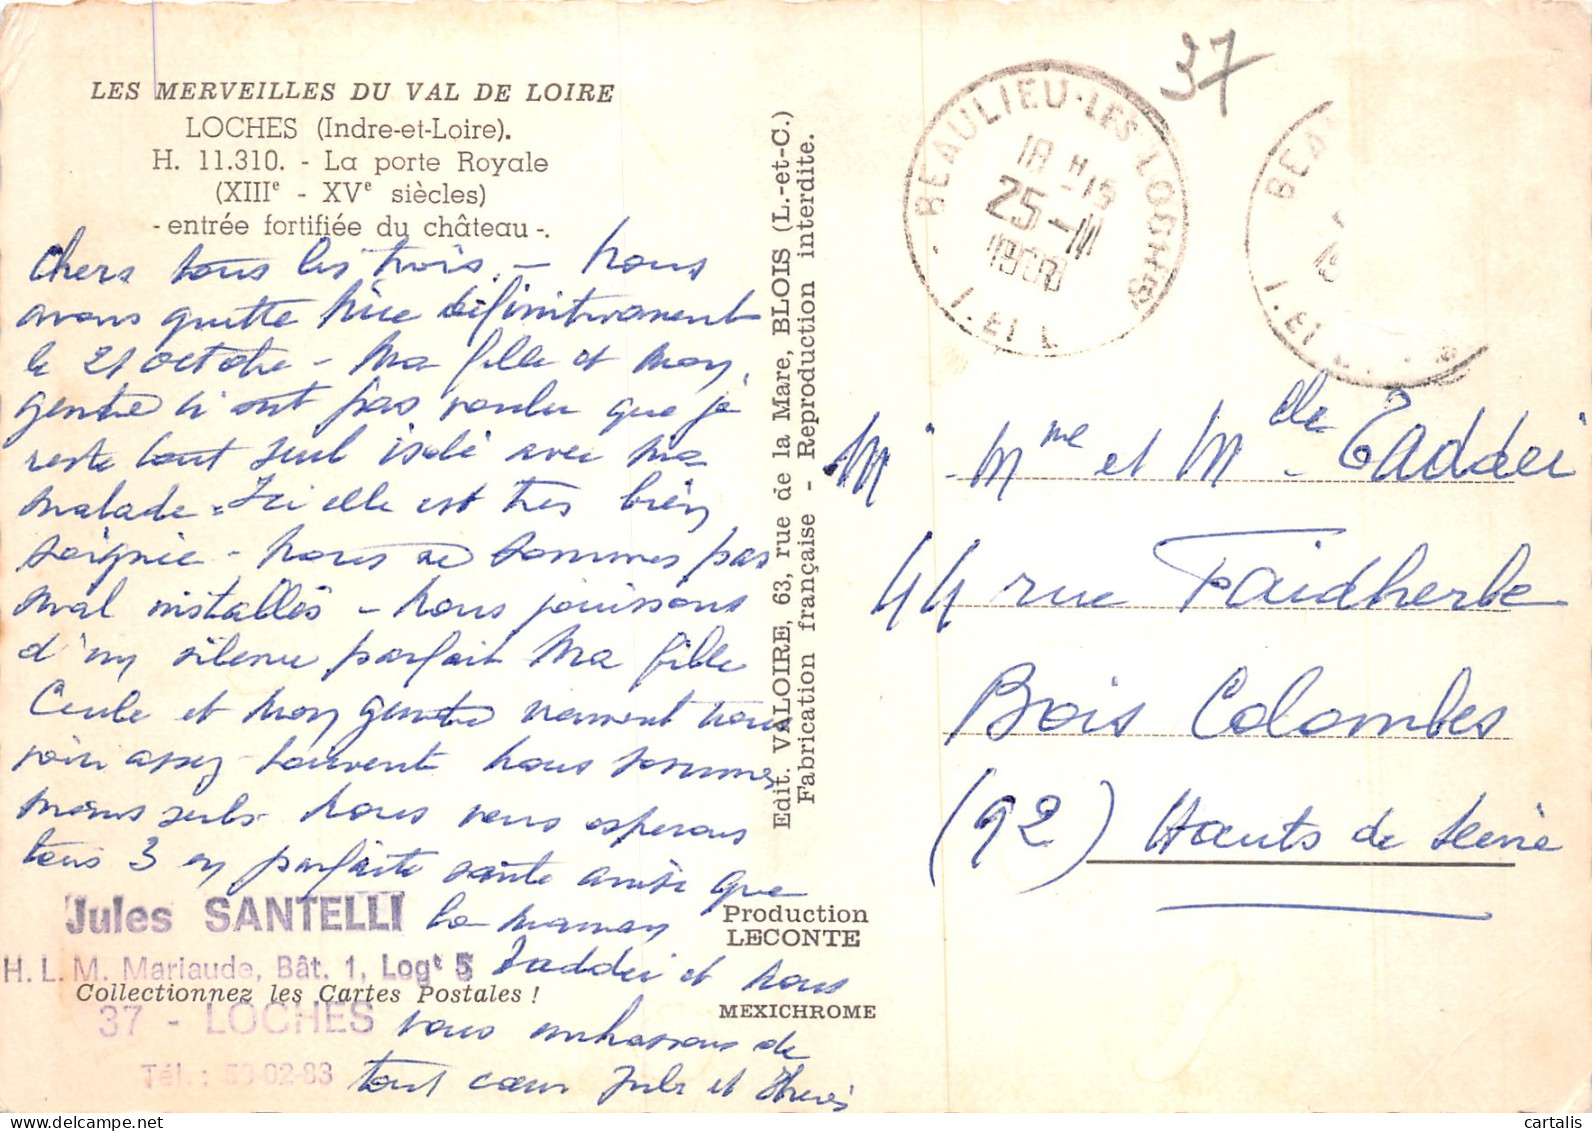 LES MERVEILLES DU VAL DE LOIRE
LOCHES (Indre-et-Loire).
H. 11.310. - La porte Royale
(XIIIe - XVe siècles)
- entrée fortifiée du château -.
Chers tous les trois - Nous
avons quitté Nice définitivement
le 21 octobre - Ma fille et mon
gendre n'ont pas voulu que je
reste tout seul isolé avec ma
malade - Ici elle est très bien
soignée - nous ne sommes pas
mal installés - Nous jouissons
d'un silence parfait Ma fille
et mon gendre viennent nous
voir assez souvent nous sommes
moins seuls nous vous espérons
tous 3 en parfaite santé ainsi que
la maman
Taddei et nous
vous embrassons de
tout cœur Jules et
Jules SANTELLI
H. L. M. Mariaude, Bât. 1, Logt 5
Collectionnez les Cartes Postales !
37 - LOCHES
Tél. : 59-02-83
Edit. VALOIRE, 63, rue de la Mare, BLOIS (L.-et-C.)
Fabrication française - Reproduction interdite.
Production
LECONTE
MEXICHROME
37
BEAULIEU-LES-LOCHES
18 H 15
25-11
I. ET L.
BEA
18
I. ET
M. Mme et Mlle Taddei
44 rue Faidherbe
Bois Colombes
(92) Hauts de Seine
cartalis